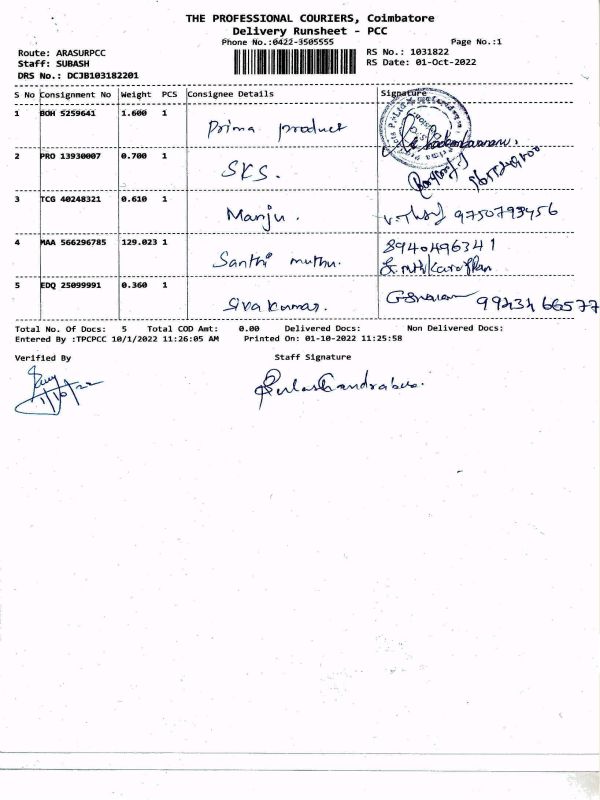 THE PROFESSIONAL COURIERS, Coimbatore
Delivery Runsheet - PCC
Phone No.:0422-3505555 Page No.:1
Route: ARASURPCC RS No.: 1031822
Staff: SUBASH RS Date: 01-Oct-2022
DRS No.: DCJB103182201
S No Consignment No Weight PCS Consignee Details Signature
1 BOH 5259641 1.600 1
Prima product
2 PRO 13930007 0.700 1
SKS.
3 TCG 40248321 0.610 1
Manju. 9750793456
4 MAA 566296785 129.023 1 8940496341
Santhi muthu.
5 EDQ 25099991 0.360 1
Sivakumar. 99434 66577
Total No. Of Docs: 5 Total COD Amt: 0.00 Delivered Docs: Non Delivered Docs:
Entered By :TPCPCC 10/1/2022 11:26:05 AM Printed On: 01-10-2022 11:25:58
Verified By Staff Signature
1/10/22